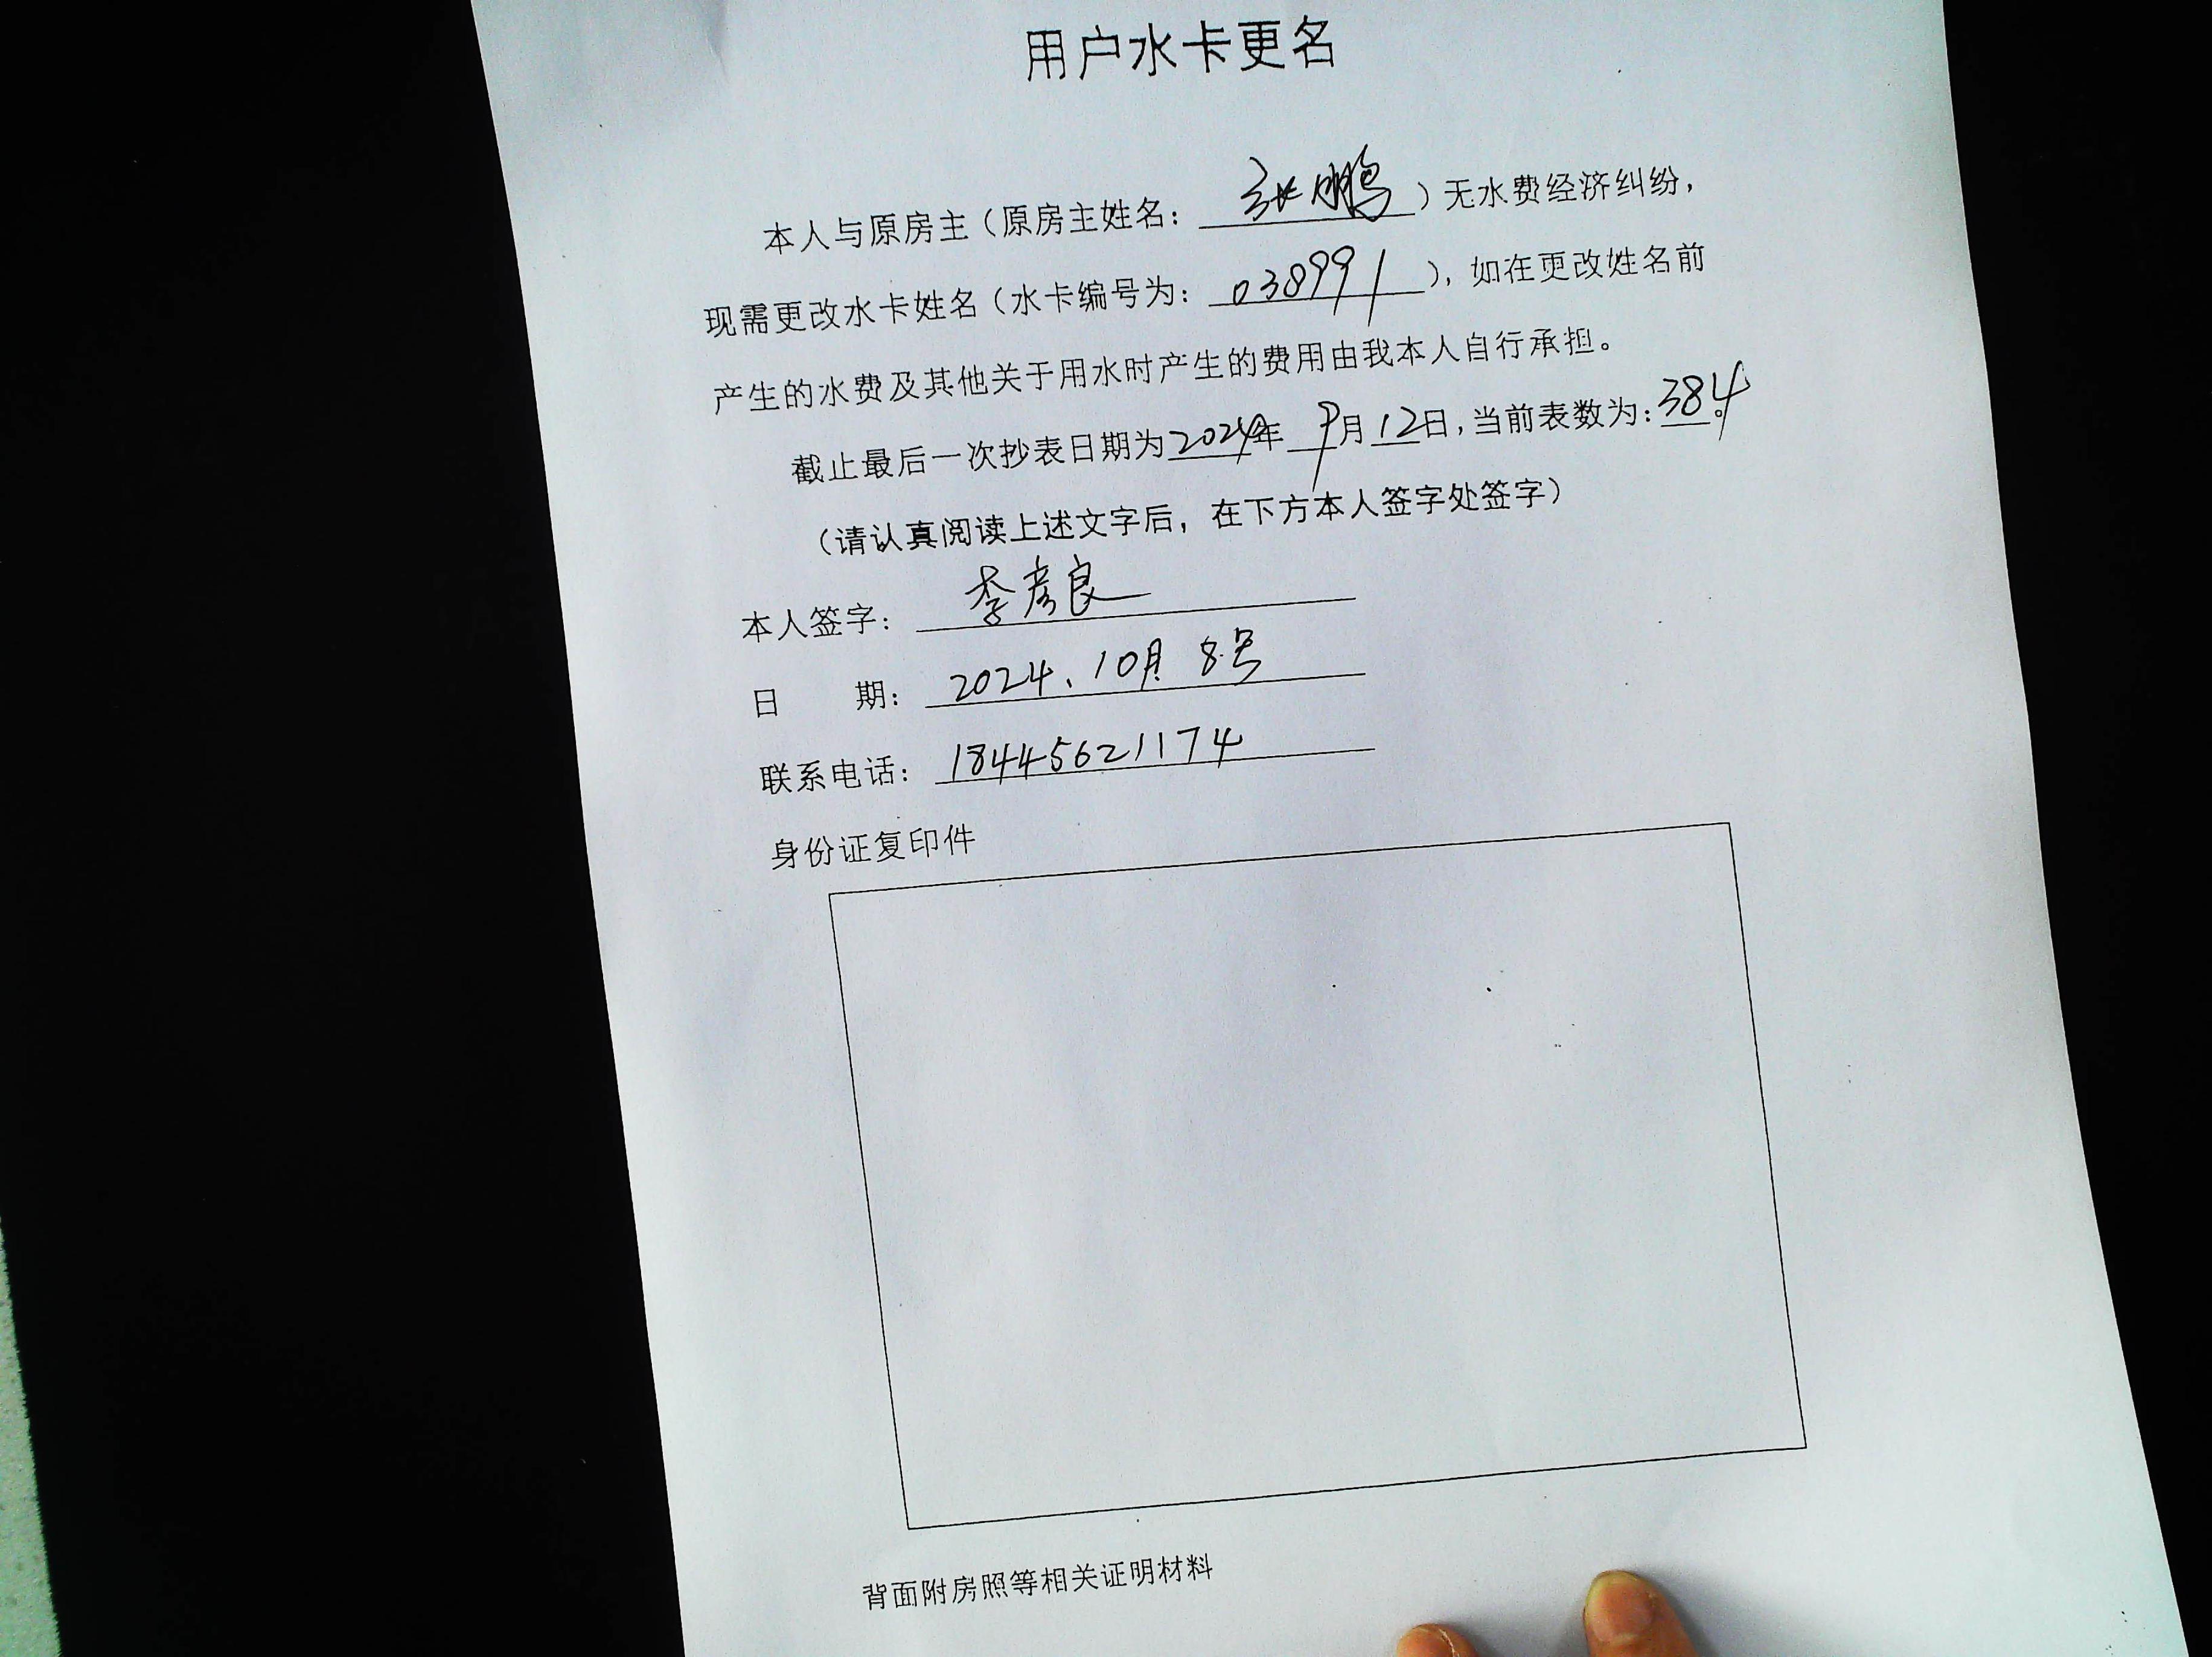 用户水卡更名
本人与原房主（原房主姓名：张鹏）无水费经济纠纷，
现需更改水卡姓名（水卡编号为：038991），如在更改姓名前
产生的水费及其他关于用水时产生的费用由我本人自行承担。
截止最后一次抄表日期为2024年 9月12日，当前表数为：384。
（请认真阅读上述文字后，在下方本人签字处签字）
本人签字：李彦良
日 期：2024、10月 8号
联系电话：18445621174
身份证复印件
背面附房照等相关证明材料